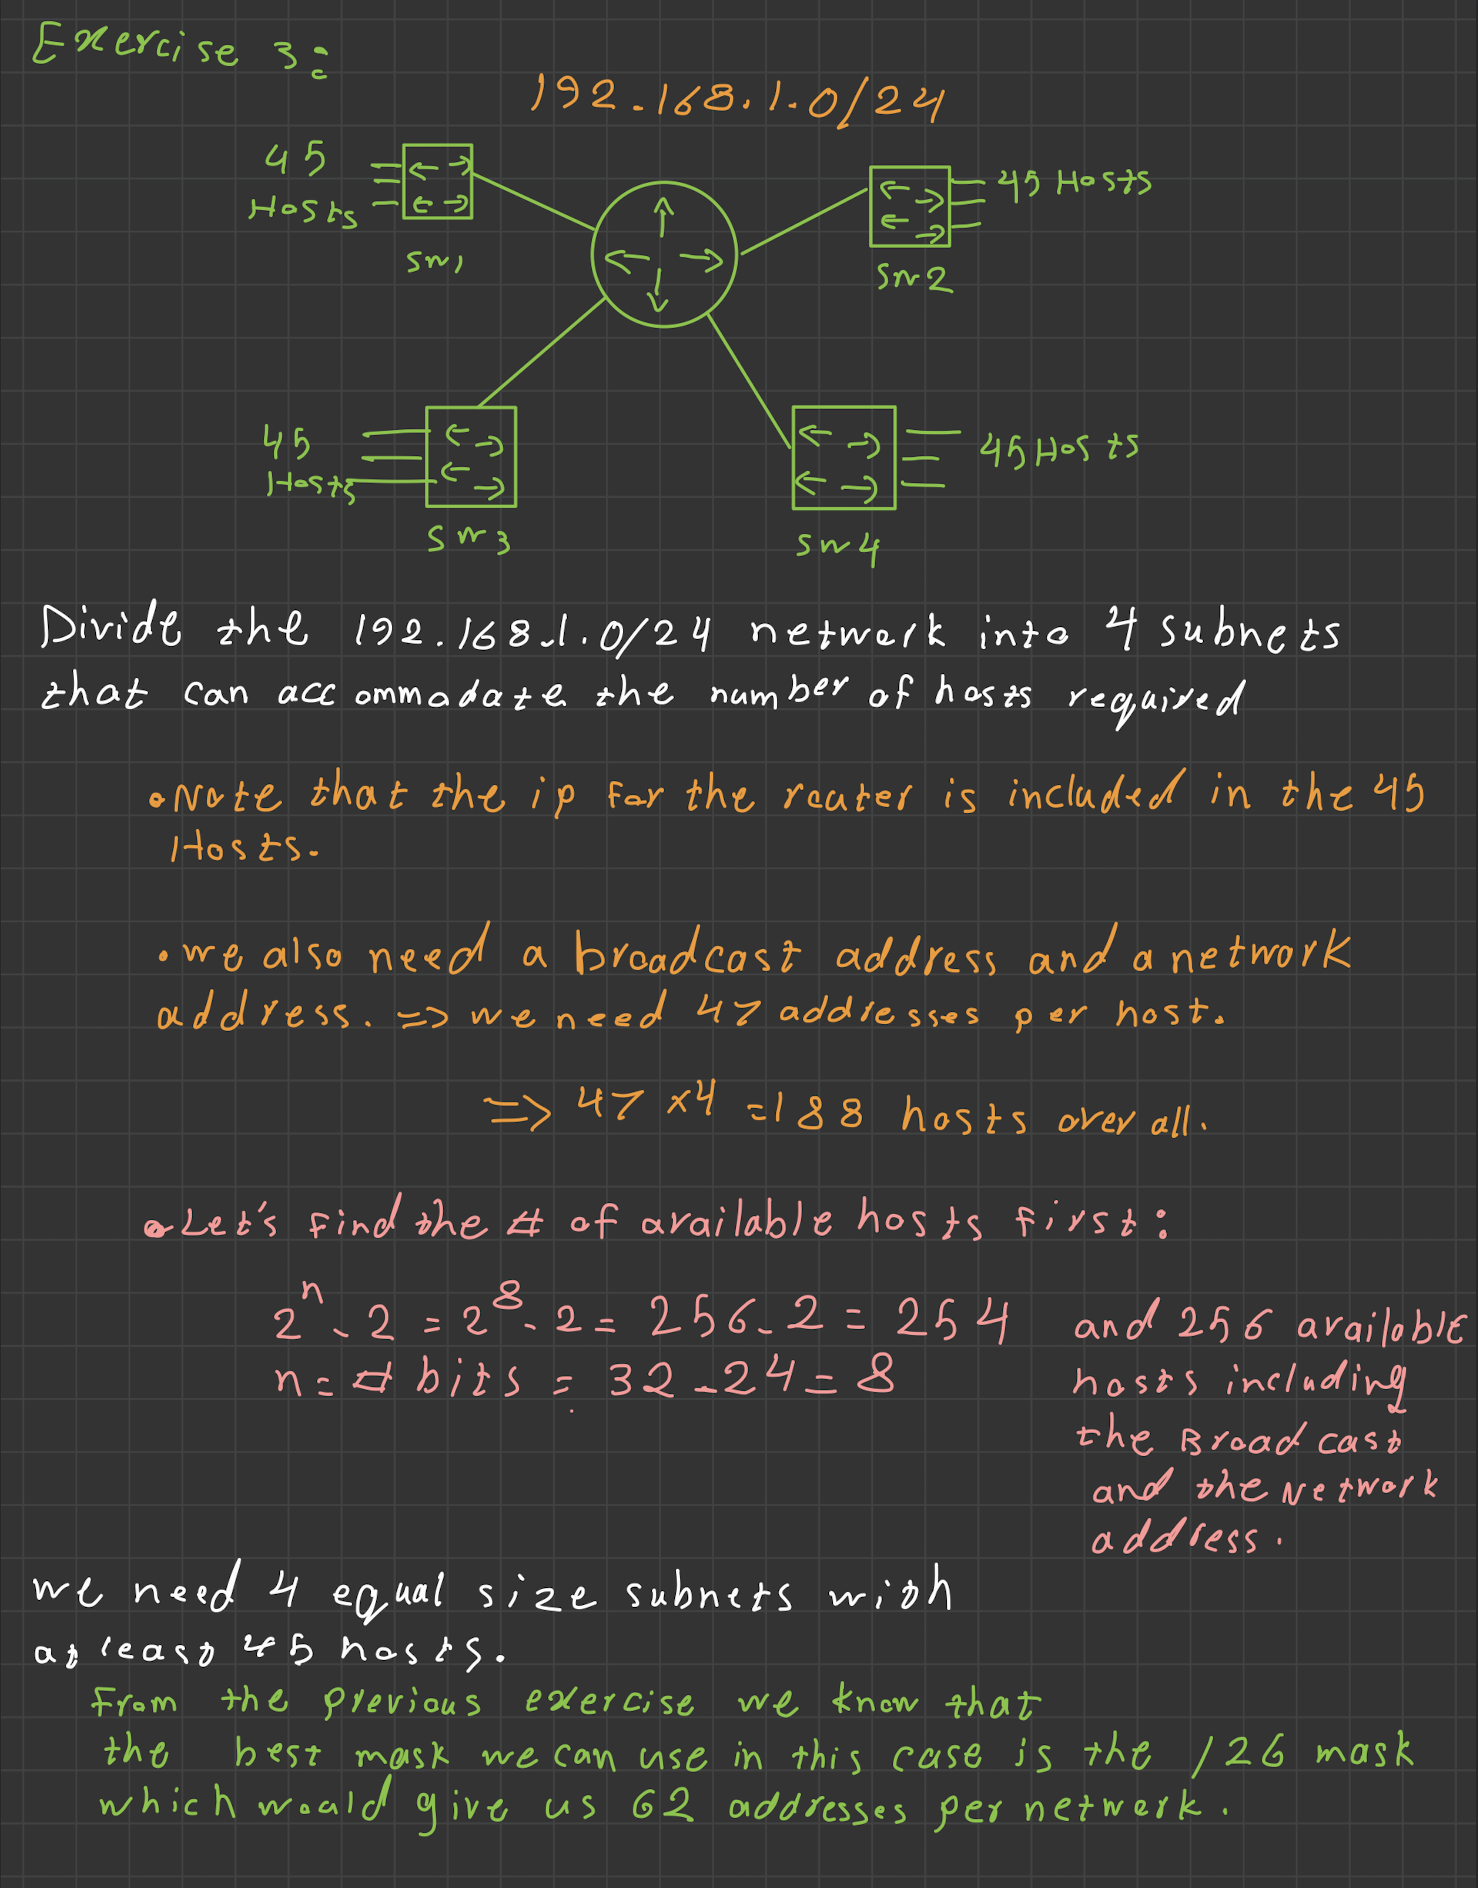 Exercise 3:
192.168.1.0/24
45
Hosts
SW1
45 Hosts
SW2
45
Hosts
SW3
45 Hosts
SW4
Divide the 192.168.1.0/24 network into 4 subnets
that can accommodate the number of hosts required
• Note that the ip for the router is included in the 45
Hosts.
• we also need a broadcast address and a network
address. => we need 47 addresses per host.
=> 47 x4 = 188 hosts over all.
• Let's find the # of available hosts first:
2^n - 2 = 2^8 - 2 = 256 - 2 = 254
n = # bits = 32 - 24 = 8
and 256 available
hosts including
the Broadcast
and the Network
address.
we need 4 equal size subnets with
at least 45 hosts.
From the previous exercise we know that
the best mask we can use in this case is the /26 mask
which would give us 62 addresses per network.